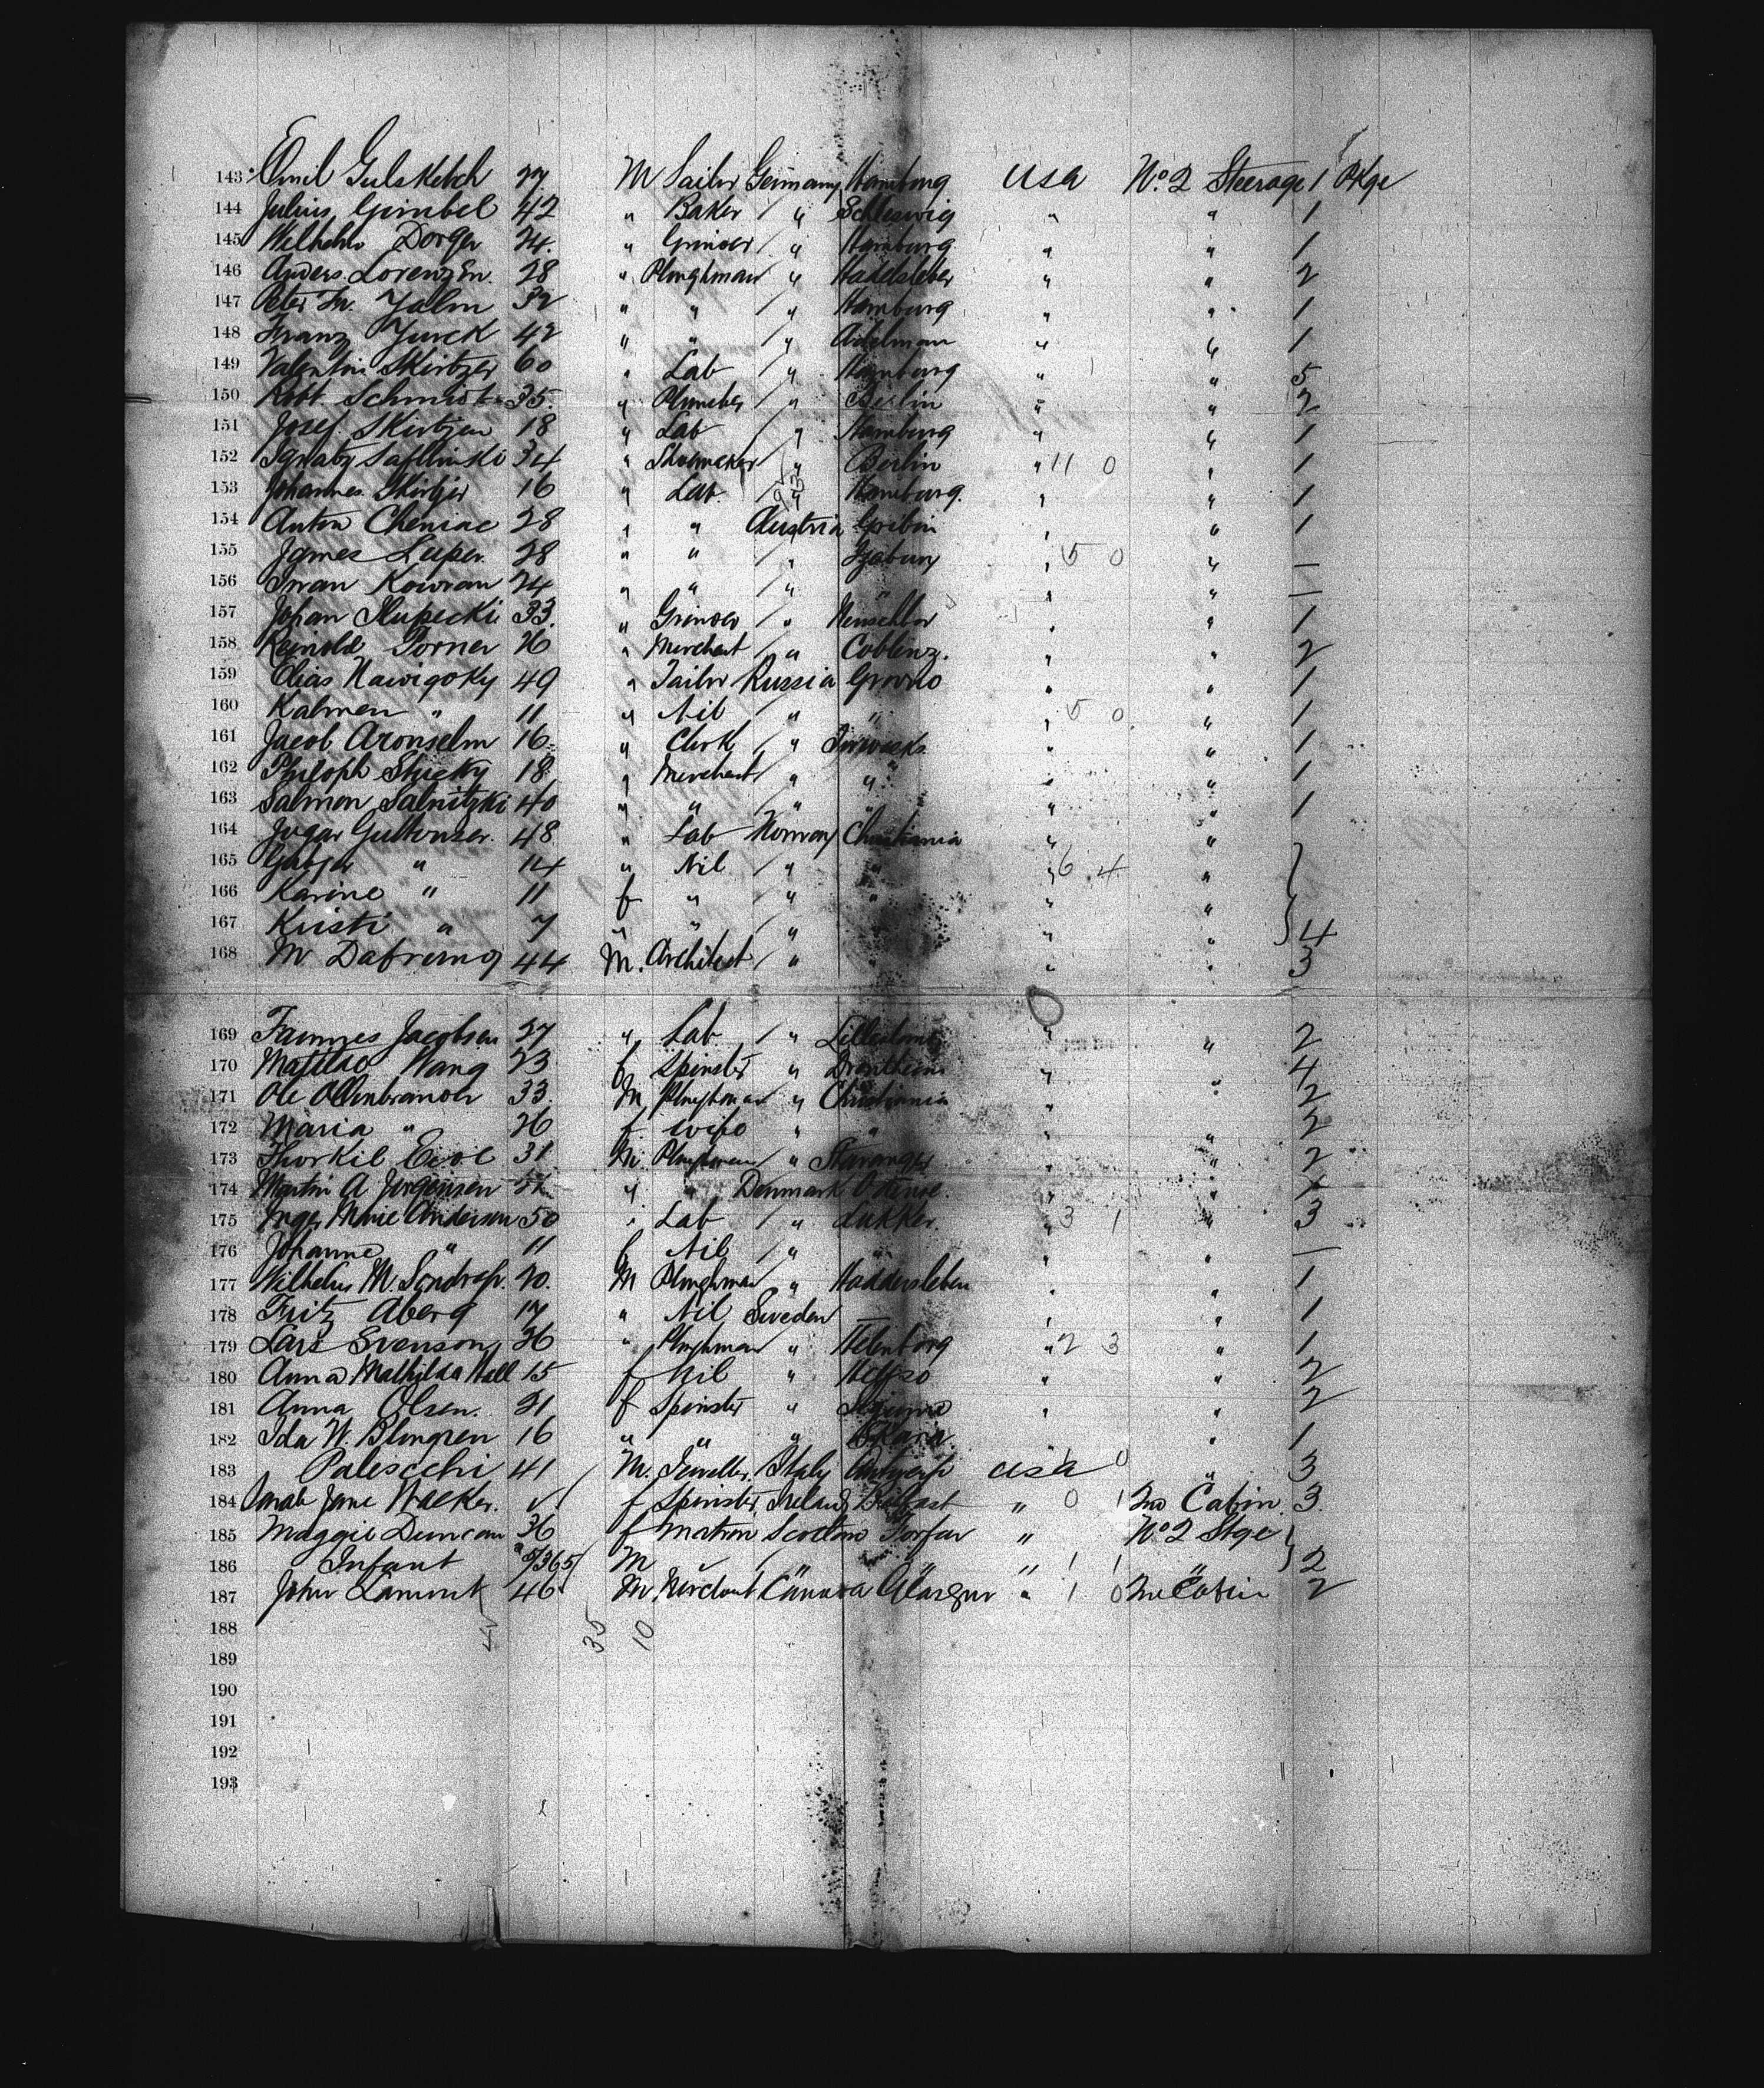 143 Emil Gulsketch 27 M Sailor Germany Hamburg USA No 2 Steerage 1 Pkge
144 Julius Gimbel 42 " Baker " Schleswig " " 1
145 Wilhelm Dorger 24 " Grinder " Hamburg " " 1
146 Anders Lorenzen 28 " Ploughman " Hadelsleber " " 2
147 Peter Fr. Jalm 32 " " " Hamburg " " 1
148 Franz Jurck 42 " " " " " 1
149 Valentin Skirtzer 60 " Lab " Hamburg " " 5
150 Robt. Schmidt 35 " Plumber " Berlin " " 2
151 Josef Skirtjen 18 " Lab " Hamburg " " 1
152 Ignatz 34 " Shoemaker " Berlin " 11 0 " 1
153 Johannes Skirtjer 16 " Lab " Hamburg " " 1
154 Anton Cheniac 28 " " Austria Gribin " " 1
155 James Luper 28 " " " " 5 0 " 1
156 Iwan Kowran 24 " " " " " " 1
157 Johan Slupecki 33 " Grinder " " " 1
158 Reinold Porner 26 " Merchant " Coblenz " " 2
159 Elias Nawigoky 49 " Tailor Russia Grovno " " 1
160 Kalmen " 11 " Nil " " " 5 0 " 1
161 Jacob Aronselm 16 " Clerk " " " 1
162 Philoph Stucky 18 " Merchant " " " " 1
163 Salmon Salnitzki 40 " " " " " " 1
164 48 " Lab Norway Christiania " "
165 " 14 " Nil " " " 6 4 "
166 Karine " 11 f " " " " "
167 Kristi " 7 " " " " " " 4
168 M Dafrang 44 M. Architect " " " " 3
169 Jacobsen 27 " Lab " " " 2
170 Matilda Wang 23 f Spinster " Drontheim " " 4
171 Ole 33 M Ploughman " Christiania " " 2
172 Maria " 26 f Wife " " " " 2
173 Thorkil 31 M Ploughman " Stavanger " " 2
174 Martin A Jorgensen " " Denmark Odense " "
175 Inger Marie Andersen 50 " Lab " Lukker " 3 1 " 3
176 Johanne " 11 f Nil " " " " 1
177 Wilhelm M. 20 M Ploughman " Haddersleben " " 1
178 Fritz Aberg 17 " Nil Sweden — " " 1
179 Lars Svenson 26 " Ploughman " Helenborg " 2 3 " 1
180 Anna Mathilda Hall 15 f Nil " " " 2
181 Anna Olsen 21 f Spinster " " " 2
182 Ida W. Blmgren 16 " " " Skara " " 1
183 Palescchi 41 M. Jeweller Italy Antwerp USA 0 " 3
184 Sarah Jane Walker f Spinster Ireland Belfast " 0 1 Cabin 3
185 Maggie Duncan 36 f Matron Scotland Forfar " No 2 Stge
186 Infant M " " " 1 1 " 2
187 John Lamont 46 M Merchant Canada Glasgow " 1 0 Cabin 2
188
189
190
191
192
193